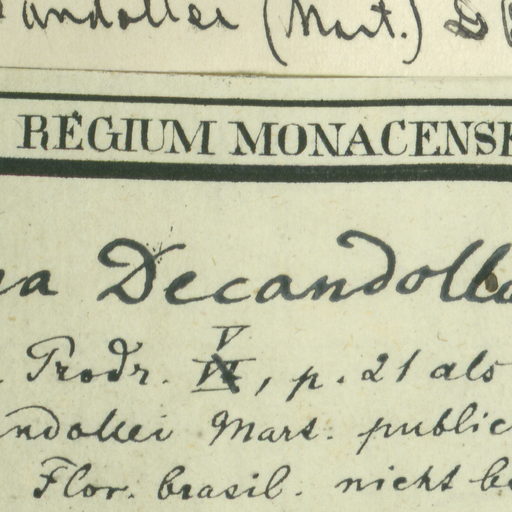 andollei (Mart.)
REGIUM MONACENSE
Decandolle
Prodr. V VI, p. 21 als
andollei Mart. public
Flor. brasil. nicht be